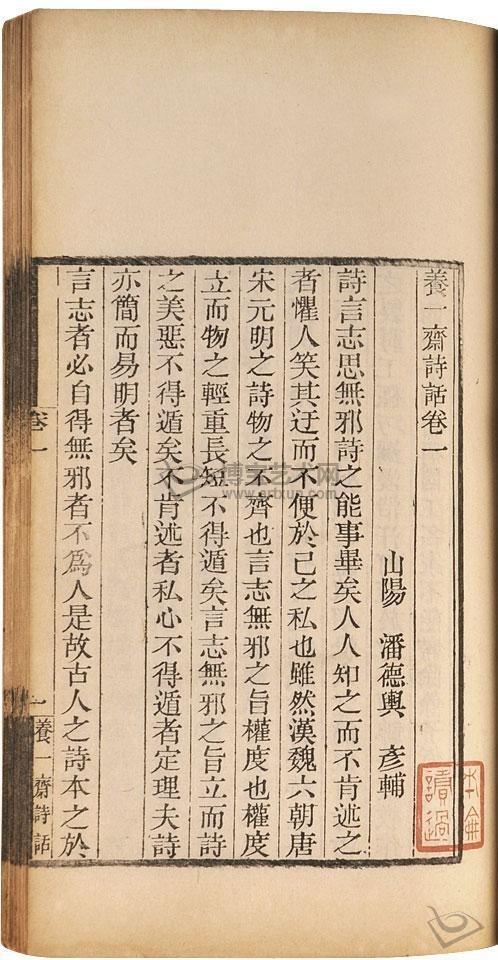 養一齋詩話卷一
山陽 潘德輿 彥輔
詩言志思無邪詩之能事畢矣人人知之而不肯述之
者懼人笑其迂而不便於己之私也雖然漢魏六朝唐
宋元明之詩物之不齊也言志無邪之旨權度也權度
立而物之輕重長短不得遁矣言志無邪之旨立而詩
之美惡不得遁矣不肯述者私心不得遁者定理夫詩
亦簡而易明者矣
言志者必自得無邪者不爲人是故古人之詩本之於
卷一
一
養一齋詩話
讀過
博宝艺术网
www.artxun.com